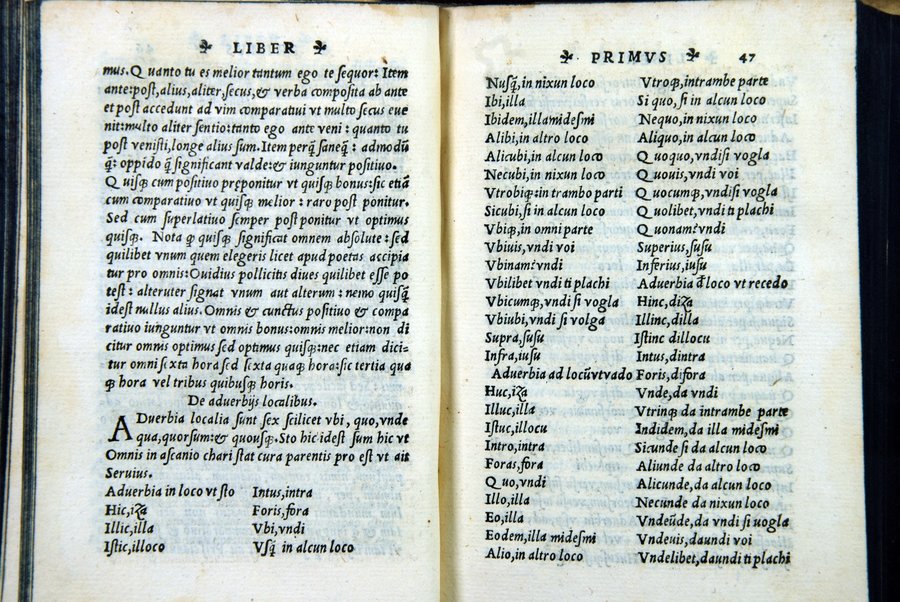 LIBER
mus. Quanto tu es melior tantum ego te sequor: Item
ante: post, alius, aliter, secus, & verba composita ab ante
et post accedunt ad vim comparatiui vt multo secus eue
nit: multo aliter sentio: tanto ego ante veni: quanto tu
post venisti, longe alius sum. Item perq̃ saneq̃: admodũ
q̃: oppido q̃ significant valde: & iunguntur positiuo.
Quisq; cum positiuo preponitur vt quisq; bonus: sic etiã
cum comparatiuo vt quisq; melior: raro post ponitur.
Sed cum superlatiuo semper post ponitur vt optimus
quisq;. Nota ꝙ quisq; significat omnem absolute: sed
quilibet vnum quem elegeris licet apud poetas accipia
tur pro omnis: Ouidius pollicitis diues quilibet esse po
test: alteruter signat vnum aut alterum: nemo quisq̃
idest nullus alius. Omnis & cunctus positiuo & compa
ratiuo iunguntur vt omnis bonus: omnis melior: non di
citur omnis optimus sed optimus quisq;: nec etiam dici-
tur omni sexta hora sed sexta quaq; hora: sic tertia qua
q; hora vel tribus quibusq; horis.
De aduerbijs localibus.
ADuerbia localia sunt sex scilicet vbi, quo, vnde
qua, quorsum: & quousq;. Sto hic idest sum hic vt
Omnis in ascanio chari stat cura parentis pro est vt ait
Seruius.
Aduerbia in loco vt sto
Hic, iza
Illic, illa
Istic, illoco
Intus, intra
Foris, fora
Vbi, vndi
Vsq̃ in alcun loco
PRIMVS 47
Nusq̃, in nixun loco
Ibi, illa
Ibidem, illamidesmi
Alibi, in altro loco
Alicubi, in alcun loco
Necubi, in nixun loco
Vtrobiq; in trambo parti
Sicubi, si in alcun loco
Vbiq;, in omni parte
Vbiuis, vndi voi
Vbinam? vndi
Vbilibet vndi ti plachi
Vbicumq;, vndi si vogla
Vbiubi, vndi si volga
Supra, susu
Infra, iusu
Aduerbia ad locũ vt vado
Huc, iza
Illuc, illa
Istuc, illocu
Intro, intra
Foras, fora
Quo, vndi
Illo, illa
Eo, illa
Eodem, illa midesmi
Alio, in altro loco
Vtroq;, intrambe parte
Si quo, si in alcun loco
Nequo, in nixun loco
Aliquo, in alcun loco
Quoquo, vndisi vogla
Quouis, vndi voi
Quocumq;, vndisi vogla
Quolibet, vndi ti plachi
Quonam? vndi
Superius, susu
Inferius, iusu
Aduerbia d̃ loco vt recedo
Hinc, diza
Illinc, dilla
Istinc dillocu
Intus, dintra
Foris, difora
Vnde, da vndi
Vtrinq; da intrambe parte
Indidem, da illa midesmi
Sicunde si da alcun loco
Aliunde da altro loco
Alicunde, da alcun loco
Necunde da nixun loco
Vndeũde, da vndi si uogla
Vndeuis, daundi voi
Vndelibet, daundi ti plachi